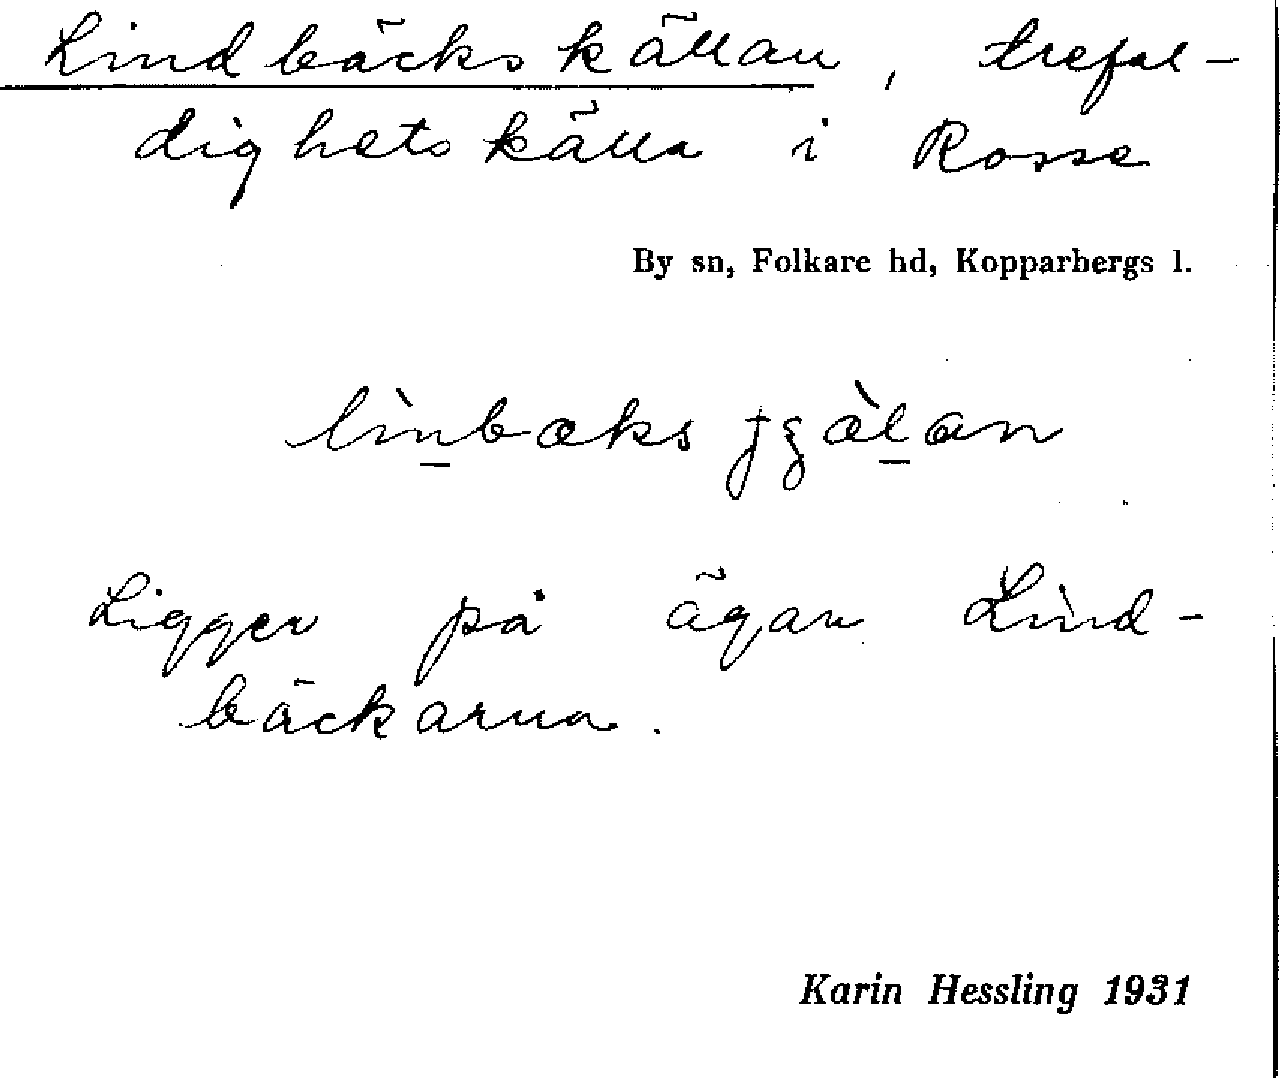 Lindbäckskällan, trefal-
dighetskälla i Rosse
By sn, Folkare hd, Kopparbergs l.
Ligger på ägan Lind-
bäckarna.
Karin Hessling 1931